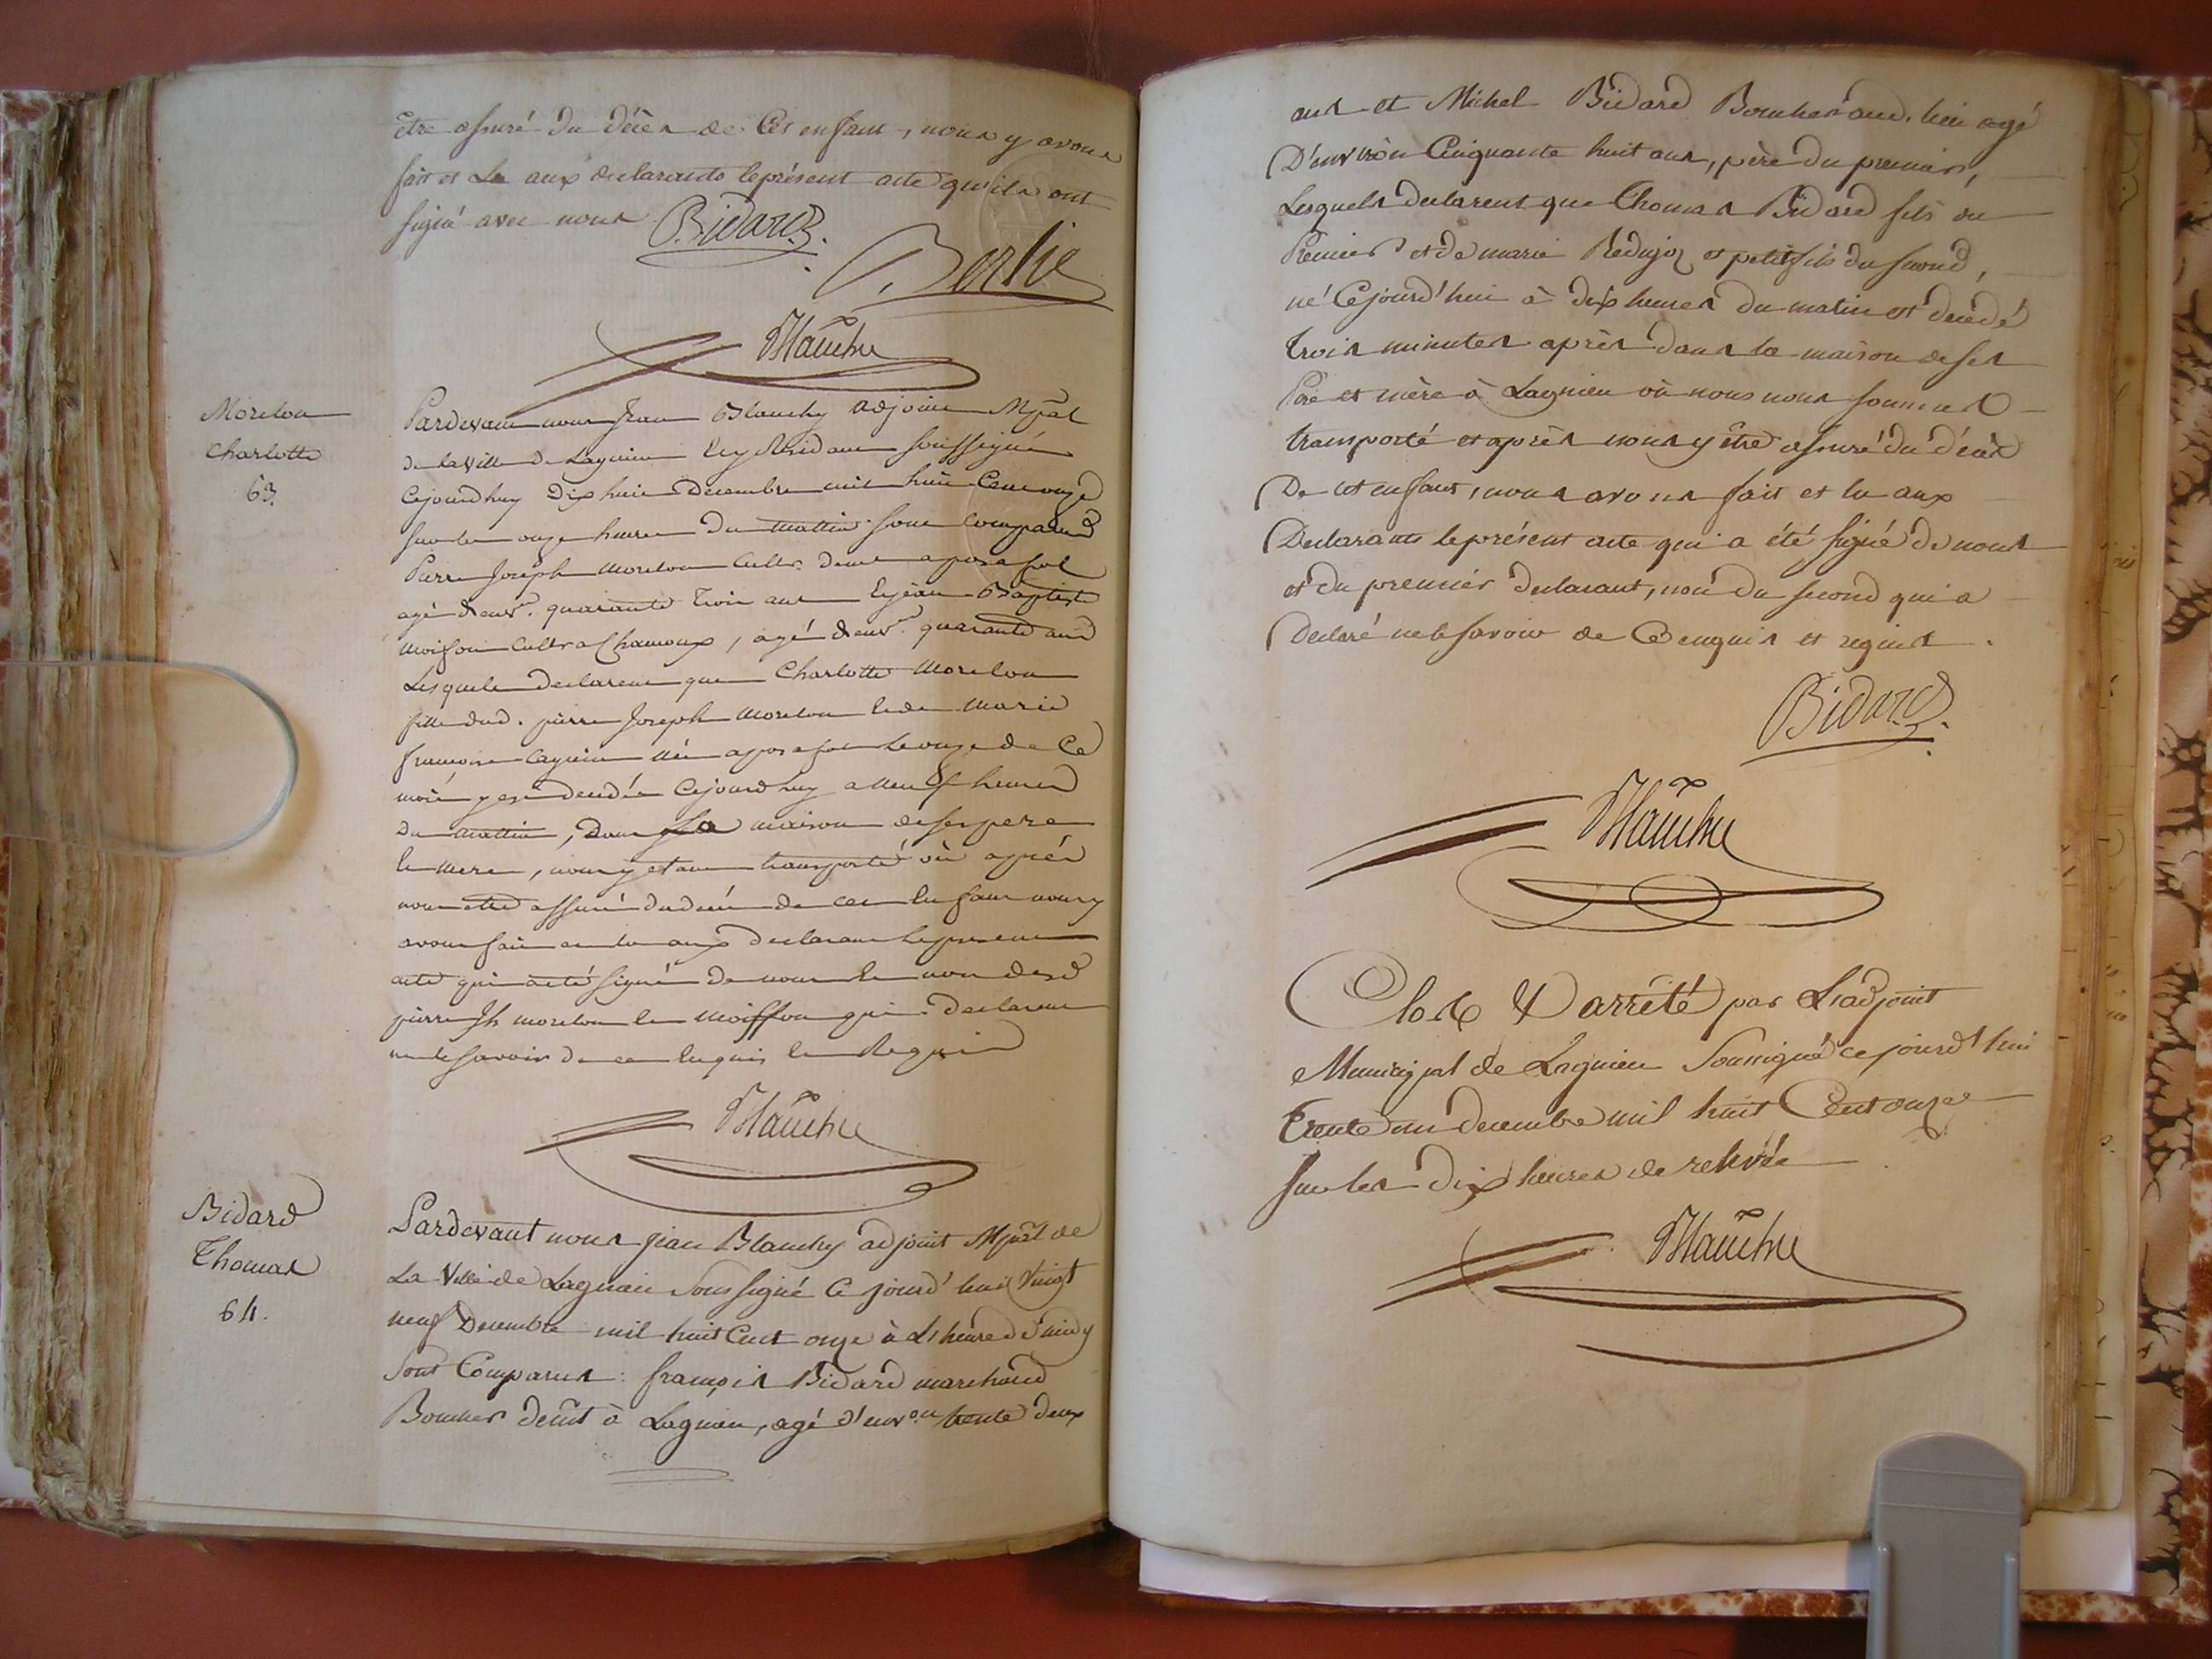 être assuré du décès de cet enfant, nous y avons
fait et lu aux declarants le présent acte qu'ils ont
signé avec nous Bidard.
Berlie
Blanchy
Morelon
Charlotte
63.
Pardevant nous Jean Blanchy adjoint Mpal
de la ville de Lagnieu y Residant soussigné
Cejourdhuy Dix huit Decembre mil huit Cent onze
sur les onze heures du mattin sont comparus
Pierre Joseph Morelon Cultr. demt a posafol
agé d'envn. quarante trois ans et jean Baptiste
Moiffon Cultr a Chamoux, agé d'envn. quarante ans
Lesquels declarent que Charlotte Morelon
fille dud. pierre Joseph Morelon et de Marie
françoise née a posafol le onze de Ce
mois y est decédée Cejourdhuy a neuf heures
du mattin, dans la maison de ses pere
et mere, nous y etant transporté où apprés
nous être assuré du decés de cet enfant nous y
avons fait et lu aux declarant le present
acte qui a eté signé de nous et non desd
pierre Jh morelon et Moiffon qui declarent
ne le savoir de ce enquis et Requis
Blanchy
Bidard
Thomas
64.
Pardevant nous jean Blanchy adjoint Mpal de
La Ville de Lagnieu Soussigné Ce jourd'hui Vingt
neuf Decembre mil huit Cent onze à L'heure de midy
Sont Comparus : françois Bidard marchand
Boucher demt à Lagnieu, agé d'envon trente deux
ans et Michel Bidard Boucher aud. lieu agé
D'environ Cinquante huit ans, père du premier,
Lesquels declarent que Thomas Bidard fils du
Premier et de marie et petit fils du second,
né Cejourd'hui à dix heures du matin est decedé
trois minutes après dans la maison de ses
Père et mère à Lagnieu où nous nous sommes
transporté et après nous y être assuré du décès
De cet enfant, nous avons fait et lu aux
Declarants le présent acte qui a été signé de nous
et du premier declarant, non du second qui a
Declaré ne le savoir de Ce enquis et requis.
Bidard.
Blanchy
Clos & arrêté par L'adjoint
Municipal de Lagnieu Soussigné ce jourd'hui
trente un decembre mil huit Cent onze
sur les dix heures de relevée
Blanchy